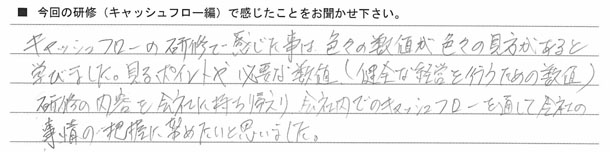 ■ 今回の研修（キャッシュフロー編）で感じたことをお聞かせ下さい。
キャッシュフローの研修で感じた事は、色々の数値が色々の見方があると
学びました。見るポイントや必要な数値（健全な経営を行うための数値）
研修の内容を会社に持ち帰り会社内でのキャッシュフローを通して会社の
事情の把握に努めたいと思いました。